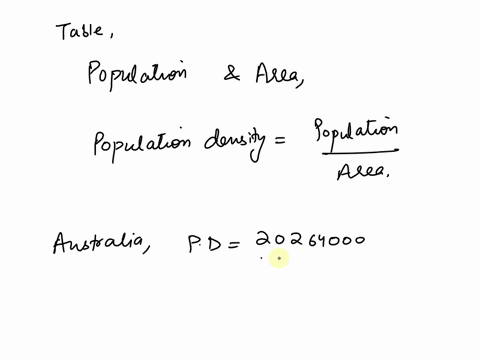 Table,
Population & Area,
Population density = Population / Area.
Australia, P.D = 20264000